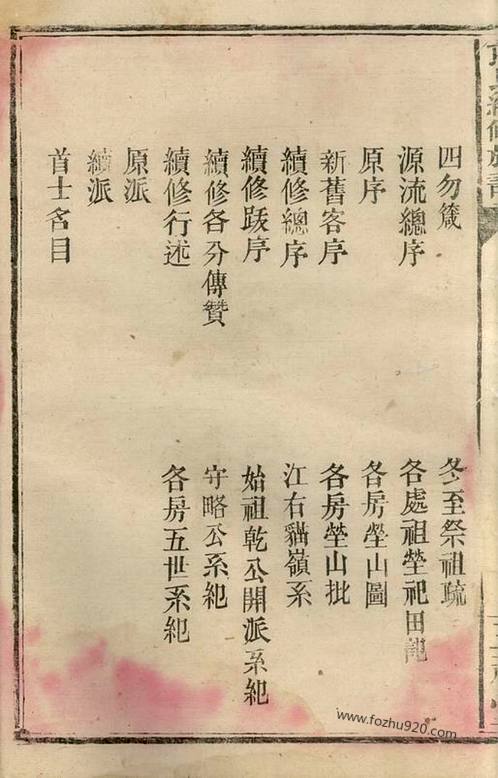 四勿箴
源流總序
原序
新舊客序
續修總序
續修跋序
續修各分傳贊
續修行述
原派
續派
首士名目
冬至祭祖疏
各處祖塋祀田記
各房塋山圖
各房塋山批
江右貓嶺系
始祖乾公開派系紀
守略公系紀
各房五世系紀
www.fozhu920.com